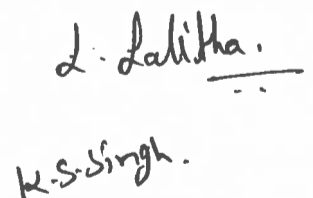 L. Lalitha.
K.S.Singh.